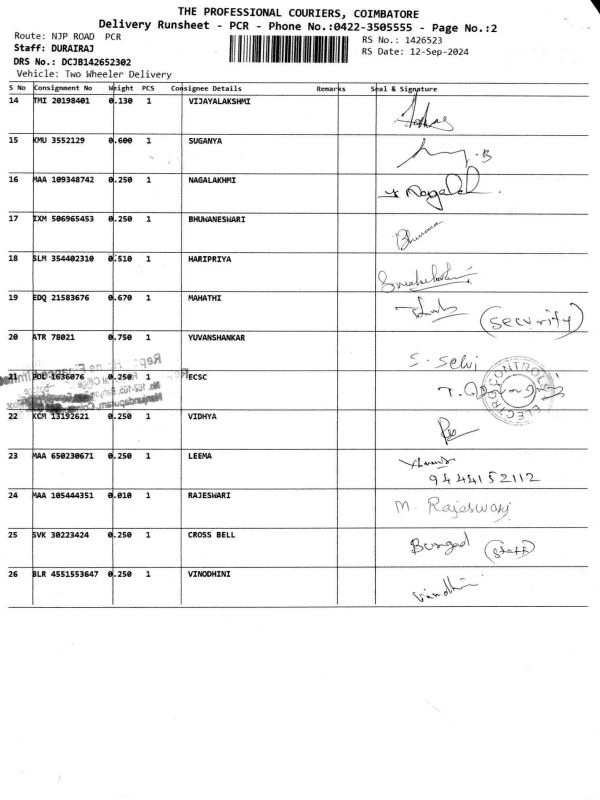 THE PROFESSIONAL COURIERS, COIMBATORE
Delivery Runsheet - PCR - Phone No.:0422-3505555 - Page No.:2
Route: NJP ROAD PCR
RS No.: 1426523
Staff: DURAIRAJ
RS Date: 12-Sep-2024
DRS No.: DCJB142652302
Vehicle: Two Wheeler Delivery
S No Consignment No Weight PCS Consignee Details Remarks Seal & Signature
14 TMI 20198401 0.130 1 VIJAYALAKSHMI
15 KMU 3552129 0.600 1 SUGANYA
16 MAA 109348742 0.250 1 NAGALAKHMI Nagalak
17 IXM 506965453 0.250 1 BHUWANESWARI
18 SLM 354402310 0.510 1 HARIPRIYA
19 EDQ 21583676 0.670 1 MAHATHI (Security)
20 ATR 78021 0.750 1 YUVANSHANKAR S. Selvi
21 POL 1636076 0.250 1 ECSC
ELECTRO CONTROLS
22 KCM 13192621 0.250 1 VIDHYA
23 MAA 650230671 0.250 1 LEEMA
9444152112
24 MAA 105444351 0.010 1 RAJESWARI M. Rajeswari
25 SVK 30223424 0.250 1 CROSS BELL (Staff)
26 BLR 4551553647 0.250 1 VINODHINI Vinodhini